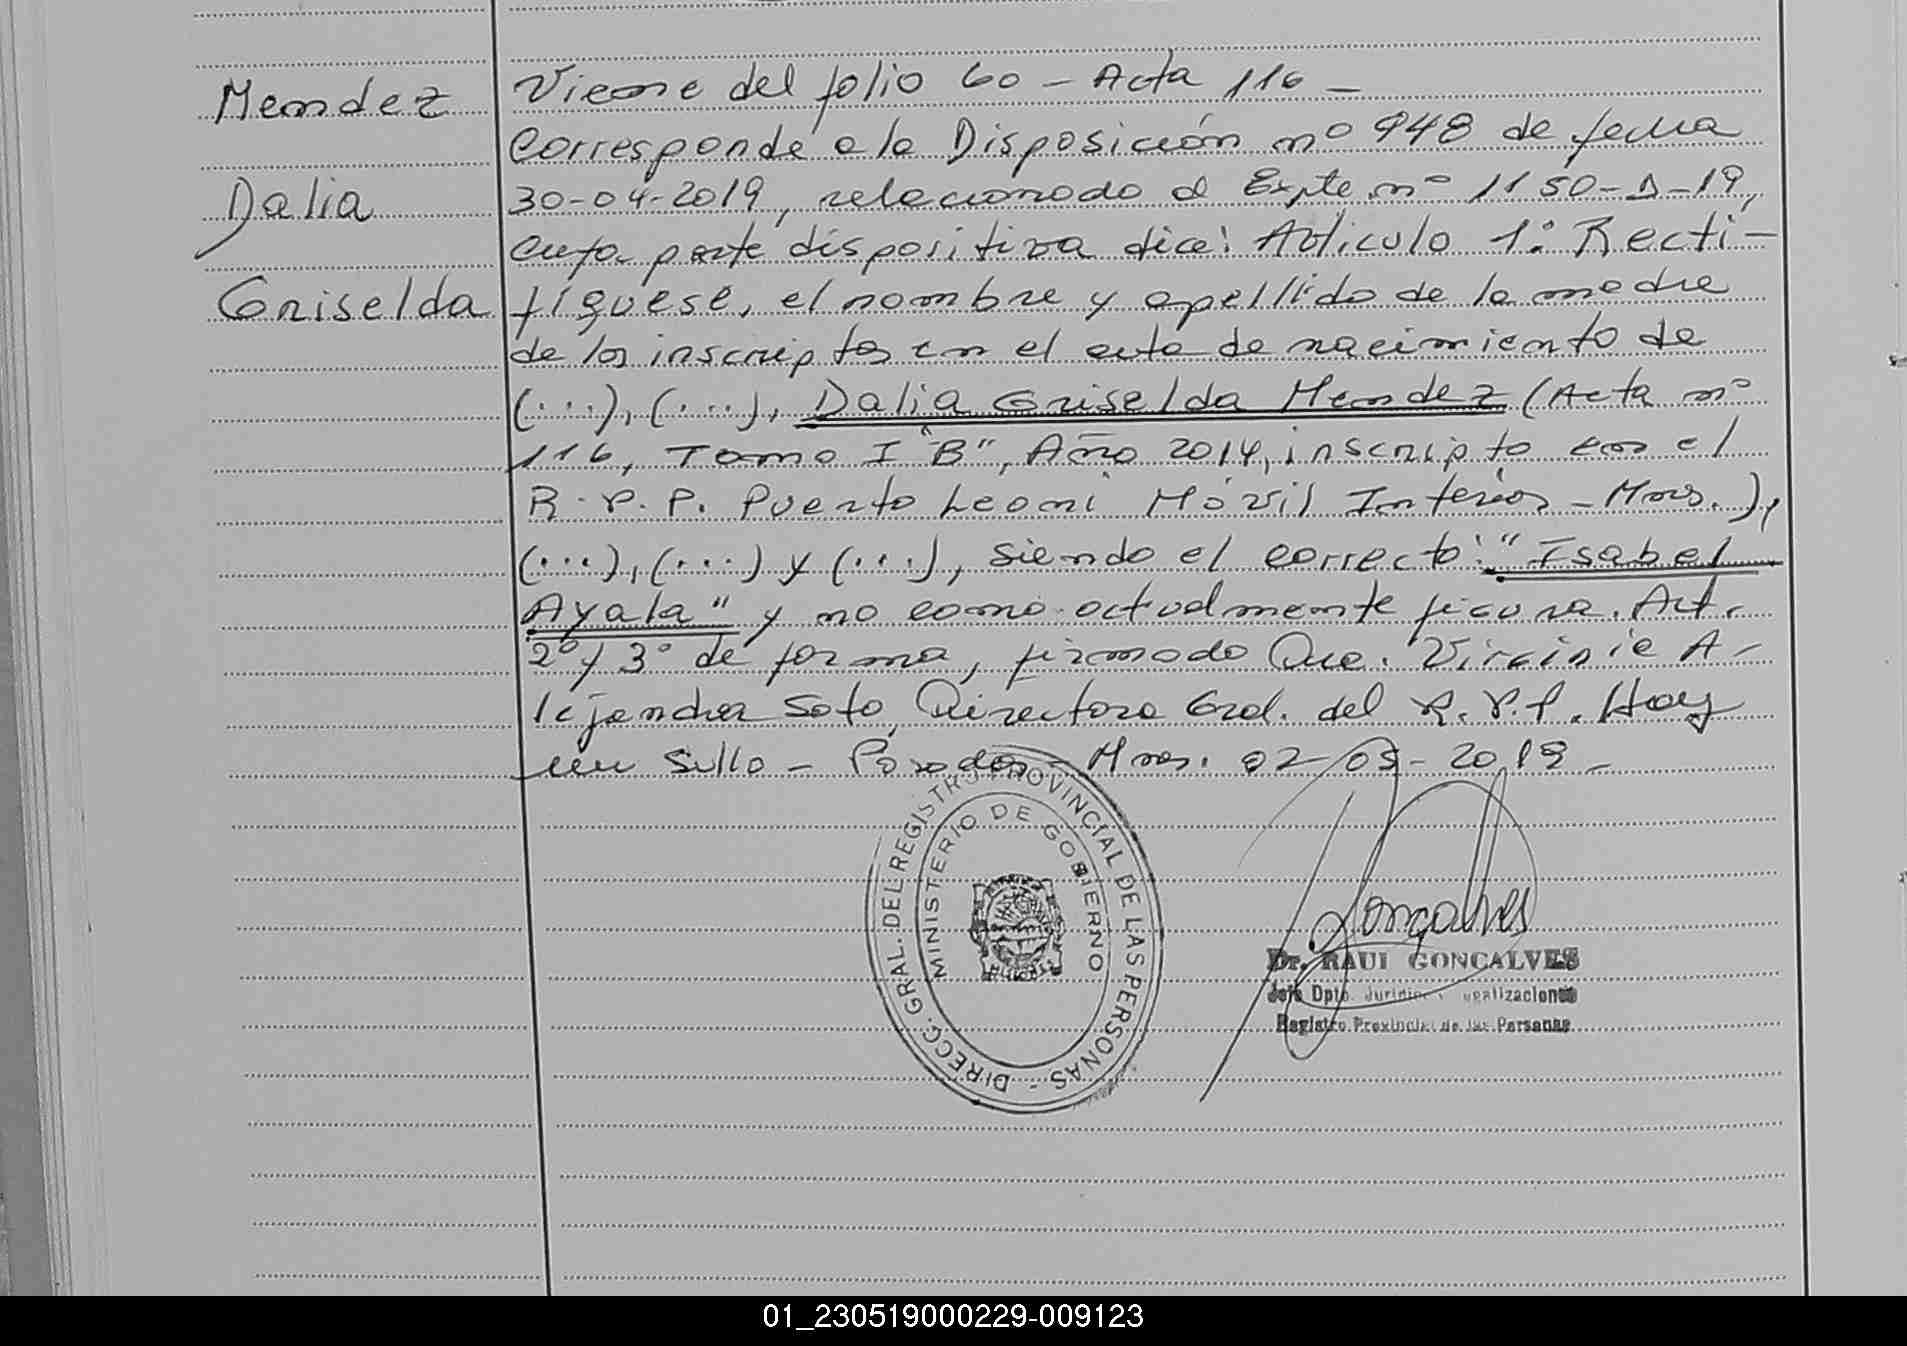 Mendez
Dalia
Griselda
Viene del folio 60 - Acta 116 -
Corresponde a la Disposición nº 948 de fecha
30-04-2019, relacionado al Expte nº 1150-D-19,
cuya parte dispositiva dice: Artículo 1º: Recti-
fíquese, el nombre y apellido de la madre
de los inscriptos en el acta de nacimiento de
(...), (...), Dalia Griselda Mendez (Acta nº
116, Tomo I "B", Año 2014, inscripto en el
R.P.P. Puerto Leoni Móvil Interior - Mnes.),
(...), (...) y (...), siendo el correcto: "Isabel
Ayala" y no como actualmente figura. Art.
2º y 3º de forma, firmado Dra. Virginia A-
lejandra Soto, Directora Gral. del R.P.P. Hay
un sello - Posadas - Mnes. 02-05-2019 -
DIRECC. GRAL. DEL REGISTRO PROVINCIAL DE LAS PERSONAS -
MINISTERIO DE GOBIERNO
MISIONES
Goncalves
Dr. RAUL GONCALVES
Jefe Dpto.
Registro Provincial de las Personas
01_230519000229-009123